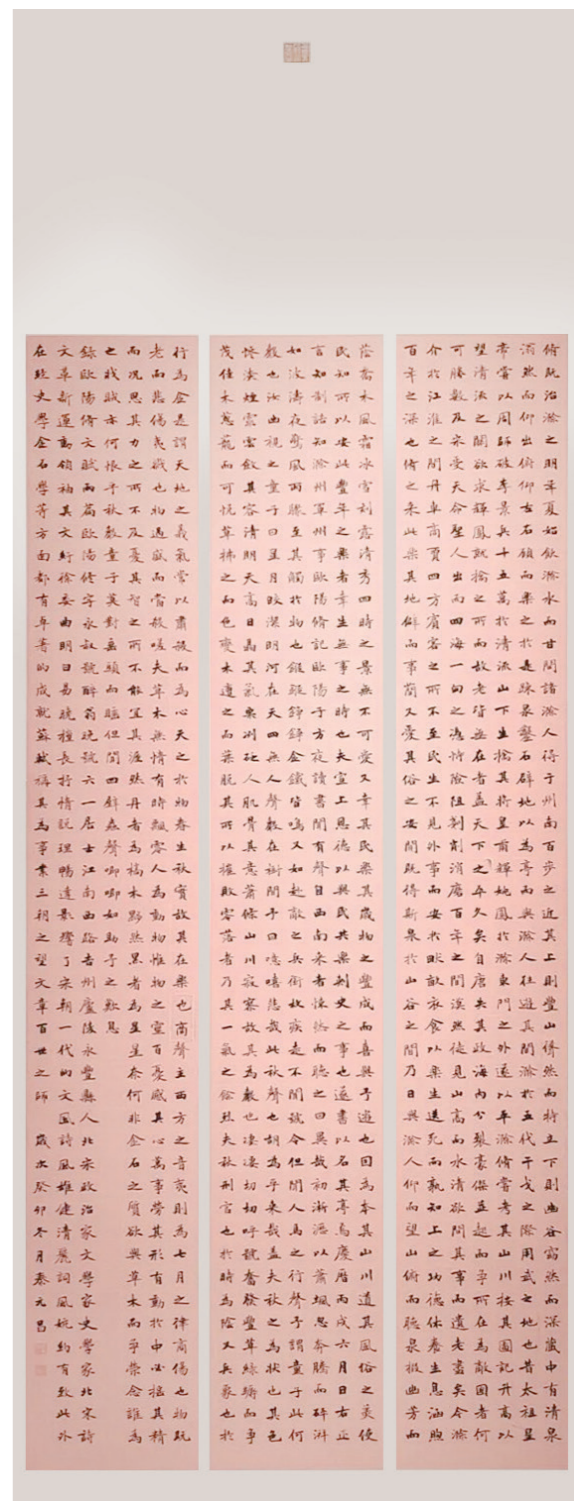 脩既治滁之明年夏始飲滁水而甘問諸滁人得于州南百步之近其上則豐山聳然而特立下則幽谷窈然而深藏中有清泉
滃然而仰出俯仰左右顧而樂之於是疏泉鑿石闢地以為亭而與滁人往遊其間滁於五代干戈之際用武之地也昔太祖皇
帝嘗以周師破李景兵十五萬於清流山下生擒其將皇甫暉姚鳳於滁東門之外遂以平滁脩嘗考其山川按其圖記升高以
望清流之關欲求暉鳳就擒之所而故老皆無在者蓋天下之平久矣自唐失其政海內分裂豪傑並起而爭所在為敵國者何
可勝數及宋受天命聖人出而四海一向之憑恃險阻剗削消磨百年之間漠然徒見山高而水清欲問其事而遺老盡矣今滁
介於江淮之間舟車商賈四方賓客之所不至民生不見外事而安於畎畝衣食以樂生送死而孰知上之功德休養生息涵煦
百年之深也脩之來此樂其地僻而事簡又愛其俗之安閒既得斯泉於山谷之間乃日與滁人仰而望山俯而聽泉掇幽芳而
蔭喬木風霜冰雪刻露清秀四時之景無不可愛又幸其民樂其歲物之豐成而喜與予遊也因為本其山川道其風俗之美使
民知所以安此豐年之樂者幸生無事之時也夫宣上恩德以與民共樂刺史之事也遂書以名其亭焉慶曆丙戌六月日右正
言知制誥知滁州軍州事歐陽脩記歐陽子方夜讀書聞有聲自西南來者悚然而聽之曰異哉初淅瀝以蕭颯忽奔騰而砰湃
如波濤夜驚風雨驟至其觸於物也鏦鏦錚錚金鐵皆鳴又如赴敵之兵銜枚疾走不聞號令但聞人馬之行聲予謂童子此何
聲也汝出視之童子曰星月皎潔明河在天四無人聲聲在樹間予曰噫嘻悲哉此秋聲也胡為乎來哉蓋夫秋之為狀也其色
慘淡煙霏雲斂其容清明天高日晶其氣慄冽砭人肌骨其意蕭條山川寂寥故其為聲也淒淒切切呼號奮發豐草綠縟而爭
茂佳木蔥蘢而可悅草拂之而色變木遭之而葉脫其所以摧敗零落者乃其一氣之餘烈夫秋刑官也於時為陰又兵象也於
行為金是謂天地之義氣常以肅殺而為心天之於物春生秋實故其在樂也商聲主西方之音夷則為七月之律商傷也物既
老而悲傷夷戮也物過盛而當殺嗟夫草木無情有時飄零人為動物惟物之靈百憂感其心萬事勞其形有動於中必搖其精
而況思其力之所不及憂其智之所不能宜其渥然丹者為槁木黟然黑者為星星奈何非金石之質欲與草木而爭榮念誰為
之戕賊亦何恨乎秋聲童子莫對垂頭而睡但聞四壁蟲聲唧唧如助予之歎息
錄歐陽修文賦兩篇歐陽修字永叔號醉翁晚號六一居士江南西路吉州廬陵永豐縣人北宋政治家文學家史學家北宋詩
文革新運動領袖其文紆徐委曲明白易曉擅長抒情說理暢達影響了宋朝一代文風詩風雄健清麗詞風婉約有致此外
在經史學金石學等方面都有卓著的成就蘇軾稱其為事業三朝之望文章百世之師 歲次癸卯冬月秦元昌